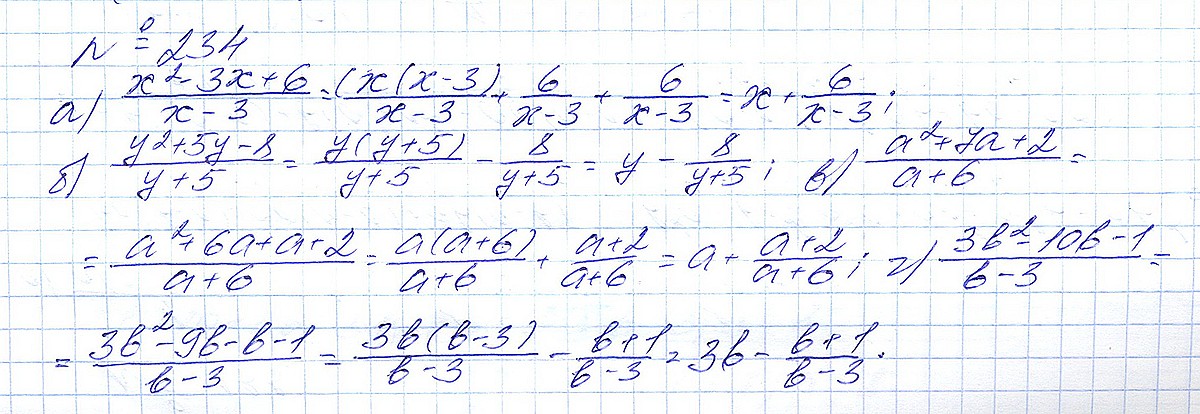 № 234
а) (x²-3x+6)/(x-3) = (x(x-3)/(x-3) + 6/(x-3) + 6/(x-3) = x + 6/(x-3);
б) (y²+5y-8)/(y+5) = y(y+5)/(y+5) - 8/(y+5) = y - 8/(y+5); в) (a²+7a+2)/(a+6) =
= (a²+6a+a+2)/(a+6) = a(a+6)/(a+6) + (a+2)/(a+6) = a + (a+2)/(a+6); г) (3b²-10b-1)/(b-3) =
= (3b²-9b-b-1)/(b-3) = 3b(b-3)/(b-3) - (b+1)/(b-3) = 3b - (b+1)/(b-3).